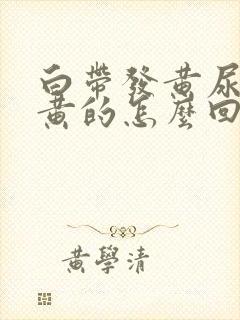 白帶發黃尿
黃的怎麼回
黃學清